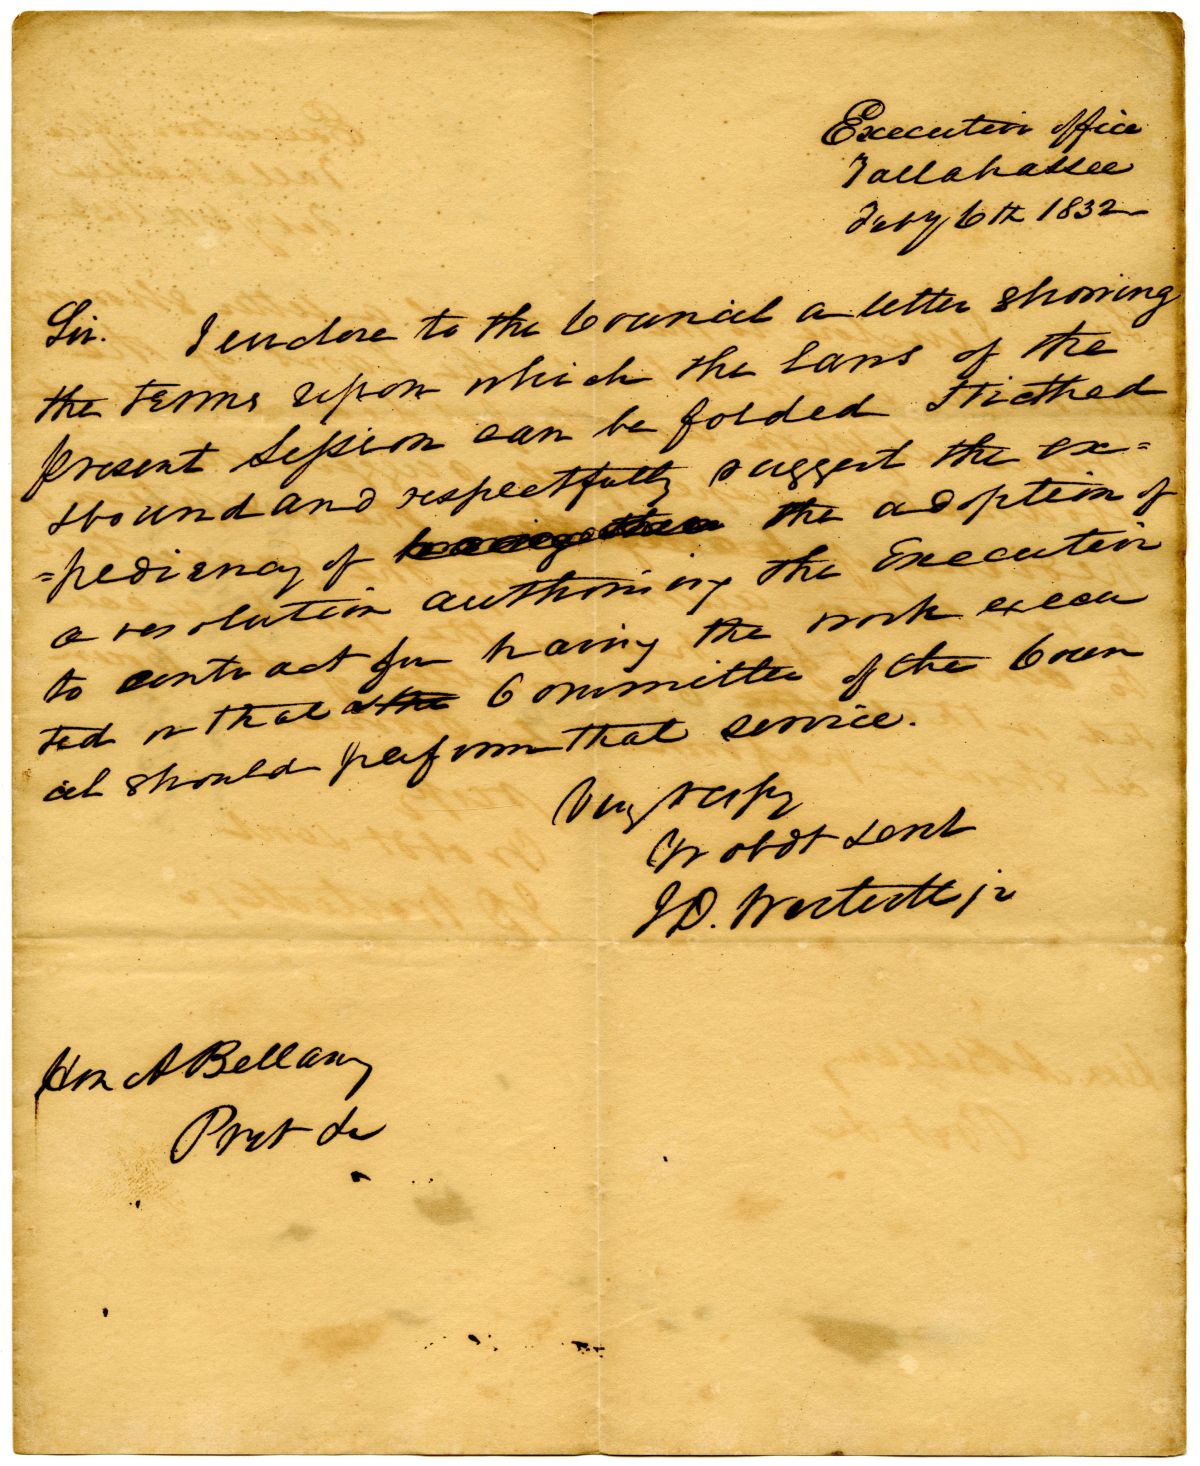 Executive office
Tallahassee
Feby 6th 1832
Sir. I enclose to the Council a letter showing
the terms upon which the laws of the
present Session can be folded stitched
& bound and respectfully suggest the ex=
=pediency of having them the adoption of
a resolution authorising the Executive
to contract for having the work execu
ted or that a the Committee of the Coun
cil should perform that service.
Very respy
Yr obdt servt
J D. Westcott jr
Hon A Bellamy
Prest &c